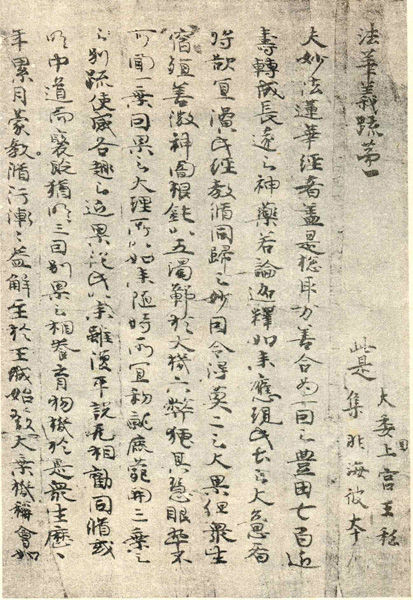 法華義疏第一
此是
大委国上宮王私
集非海彼本
夫妙法蓮華經者蓋是惣取万善合為一因之豊田七百近
壽轉成長遠之神藥若論迦釋如来應現此土之大意者
将欲宜演此經教脩同歸之妙因令得莫二之大果但衆生
宿殖善微神闇根鈍以五濁鄣於大機六弊掩其慧眼卒不
可聞一乗因果之大理所以如来随時所宜初就鹿苑開三乗之
別疏使感各趣之近果従此以来雖復平説无相勸同脩或
明中道而褒貶猶明三因別果之相養育物機於是衆生歴
年累月蒙教脩行漸之益解至於王城始發大乗機稱會如